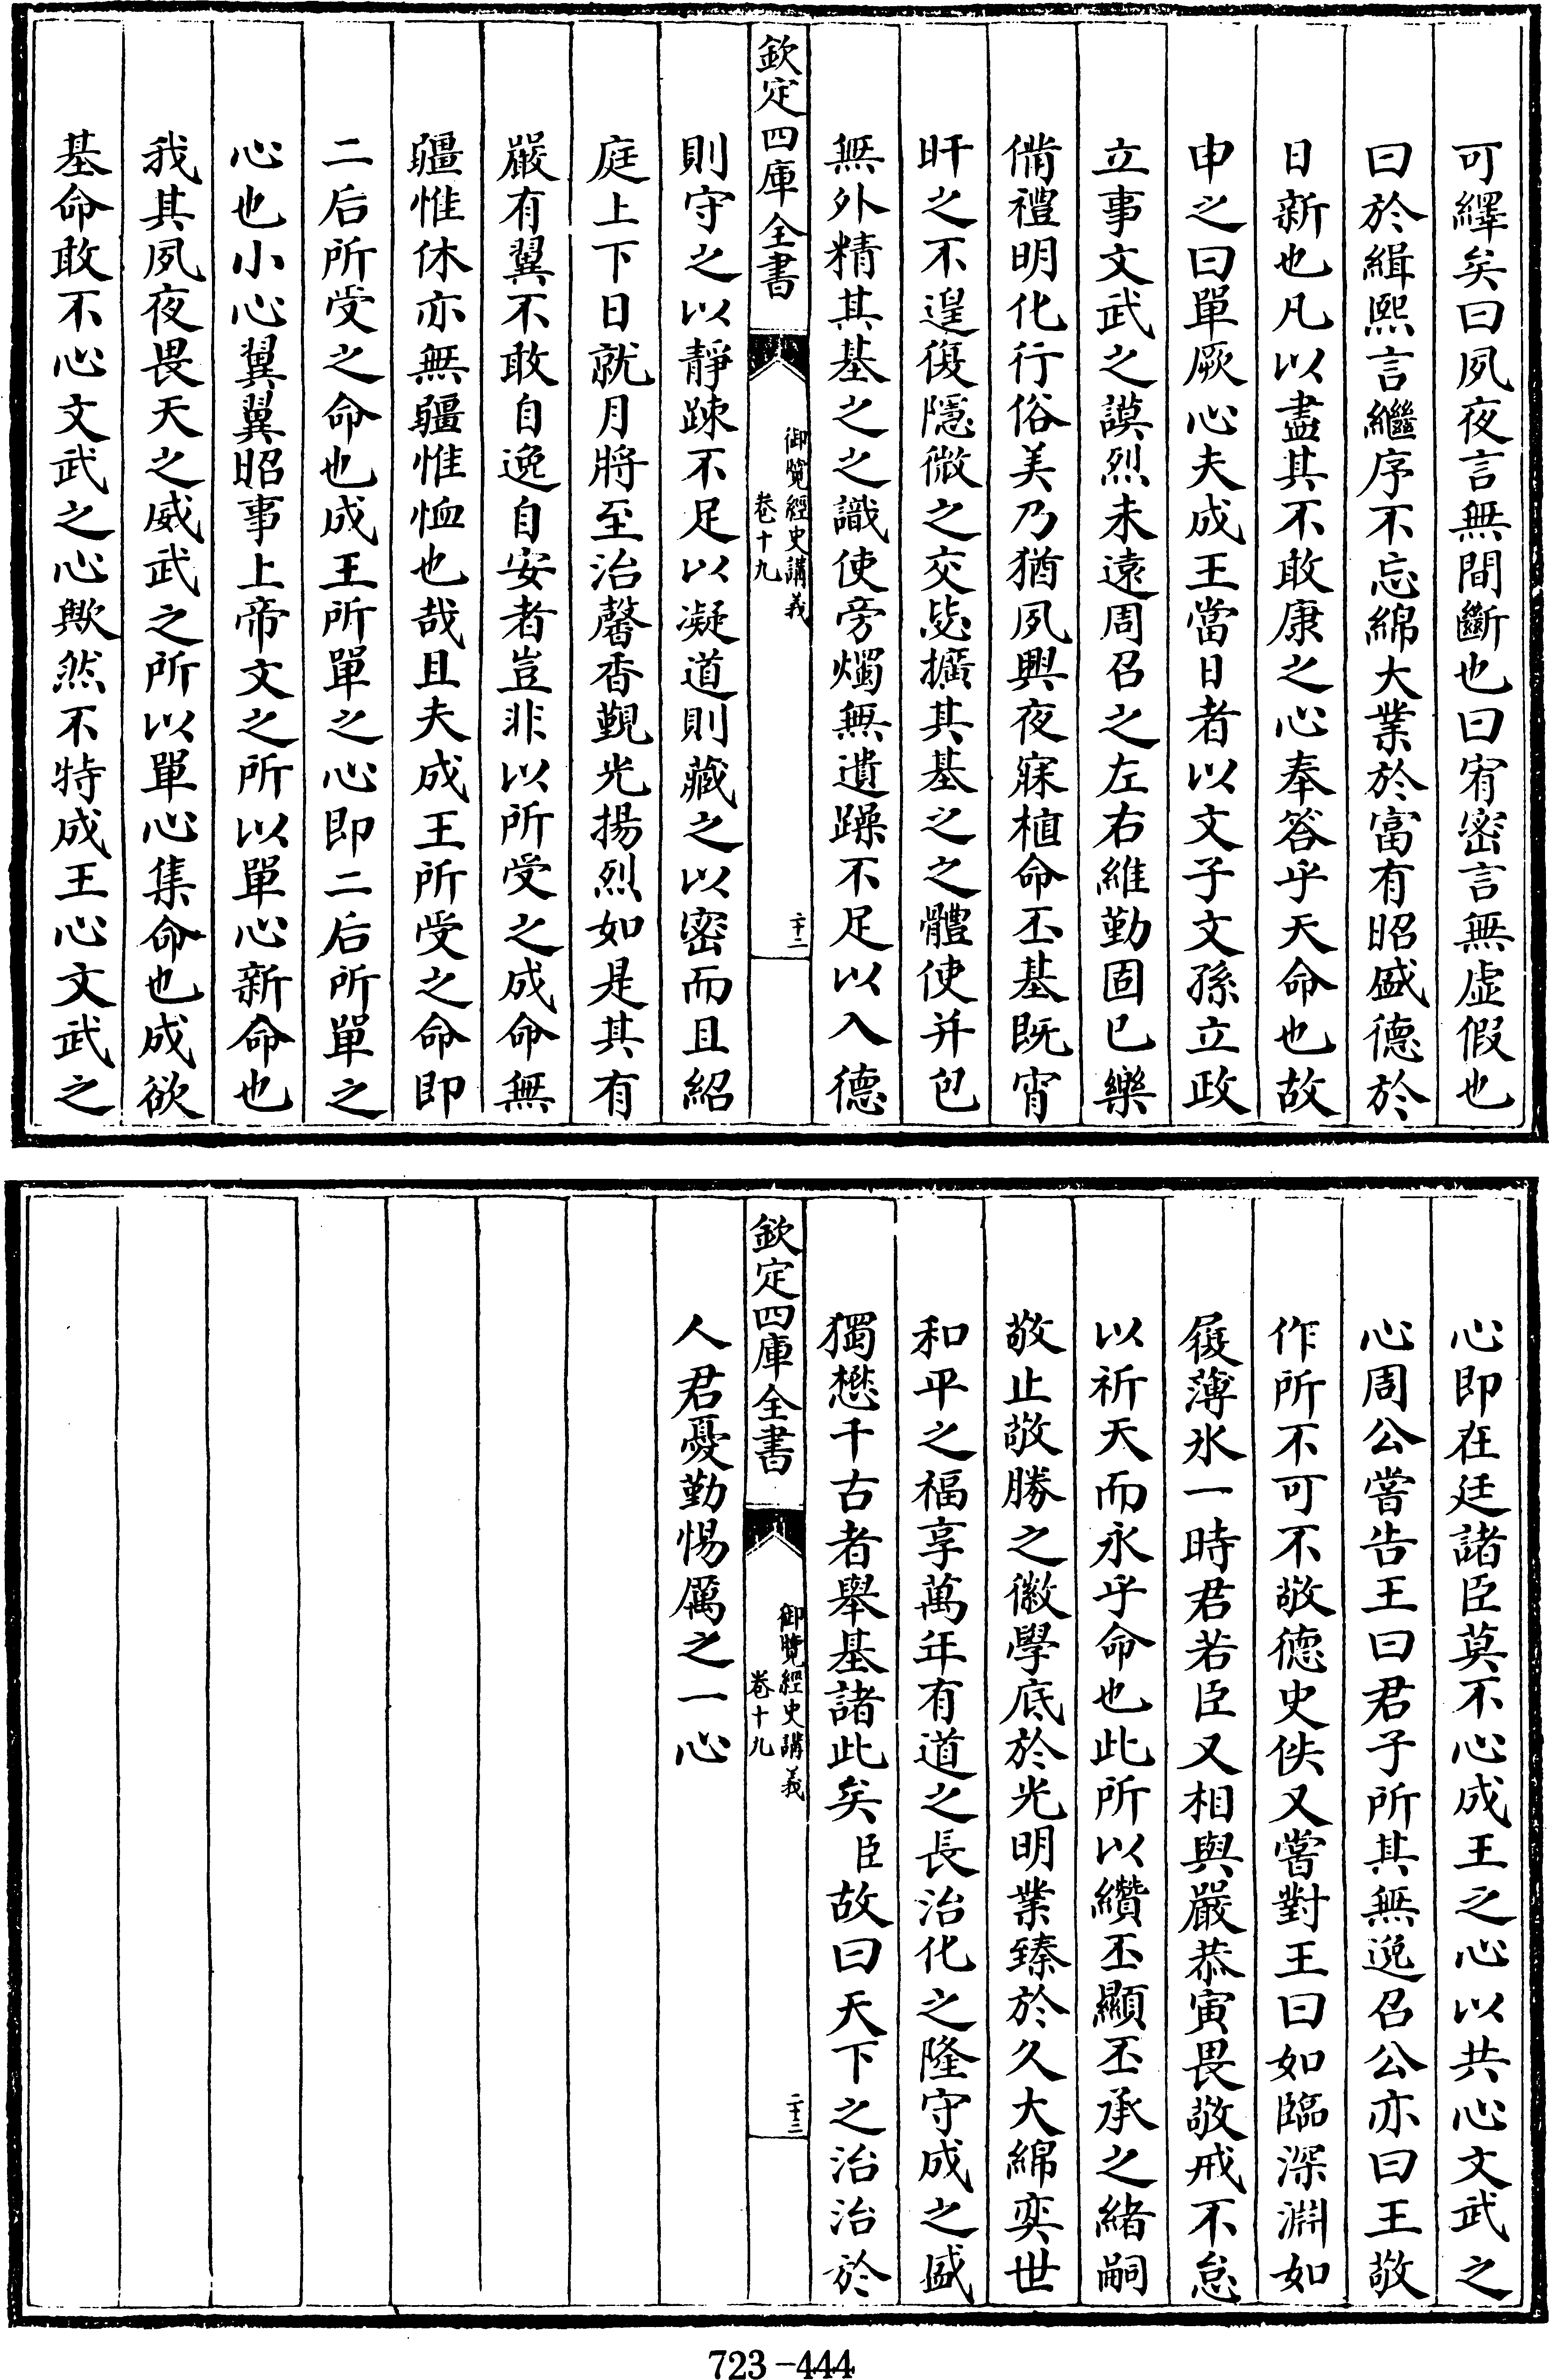 可繹矣曰夙夜言無間斷也曰宥密言無虛假也
曰於緝熙言繼序不忘綿大業於富有昭盛德於
日新也凡以盡其不敢康之心奉答乎天命也故
申之曰單厥心夫成王當日者以文子文孫立政
立事文武之謨烈未遠周召之左右維勤固已樂
備禮明化行俗美乃猶夙興夜寐植命丕基既宵
旰之不遑復隱微之交毖擴其基之之體使并包
無外精其基之之識使旁燭無遺躁不足以入德
欽定四庫全書
御覽經史講義
卷十九
二十二
則守之以靜疎不足以凝道則藏之以密而且紹
庭上下日就月將至治馨香覲光揚烈如是其有
嚴有翼不敢自逸自安者豈非以所受之成命無
疆惟休亦無疆惟恤也哉且夫成王所受之命即
二后所受之命也成王所單之心即二后所單之
心也小心翼翼昭事上帝文之所以單心新命也
我其夙夜畏天之威武之所以單心集命也成欲
基命敢不心文武之心歟然不特成王心文武之
心即在廷諸臣莫不心成王之心以共心文武之
心周公嘗告王曰君子所其無逸召公亦曰王敬
作所不可不敬德史佚又嘗對王曰如臨深淵如
履薄氷一時君若臣又相與嚴恭寅畏敬戒不怠
以祈天而永乎命也此所以纘丕顯丕承之緒嗣
敬止敬勝之徽學底於光明業臻於久大綿奕世
和平之福享萬年有道之長治化之隆守成之盛
獨懋千古者舉基諸此矣臣故曰天下之治治於
欽定四庫全書
御覽經史講義
卷十九
二十三
人君憂勤惕厲之一心
723-444